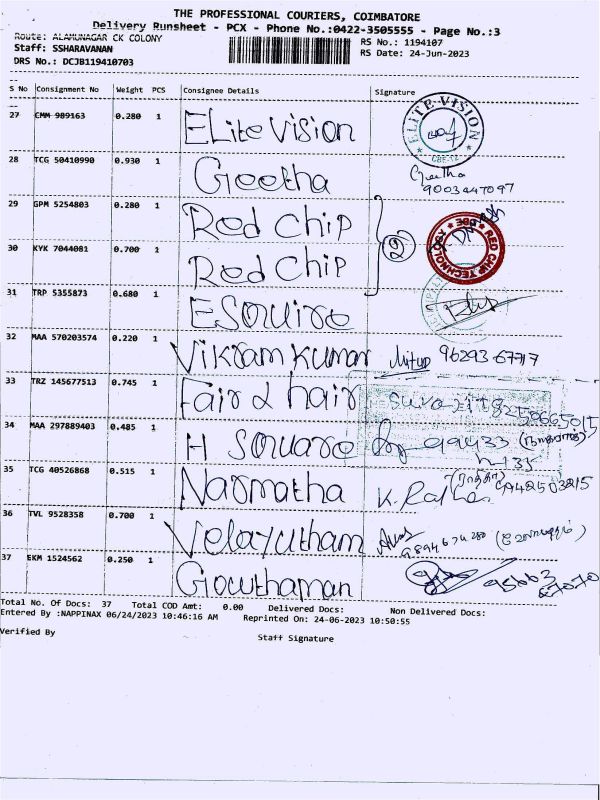 THE PROFESSIONAL COURIERS, COIMBATORE
Delivery Runsheet - PCX - Phone No.:0422-3505555 - Page No.:3
Route: ALAMUNAGAR CK COLONY
RS No.: 1194107
Staff: SSHARAVANAN
RS Date: 24-Jun-2023
DRS No.: DCJB119410703
S No Consignment No Weight PCS Consignee Details Signature
27 CMM 989163 0.280 1 Elite vision ELITE VISION CBE-12
28 TCG 50410990 0.930 1 Geetha Geetha
9003447097
29 GPM 5254803 0.280 1 Red chip
(2) RED CHIP TECHNOLOGY
30 KYK 7044081 0.700 1 Red chip
31 TRP 5355873 0.680 1 Esquire
32 MAA 570203574 0.220 1 Vikram kumar 96293 67717
33 TRZ 145677513 0.745 1 Fair & hair
34 MAA 297889403 0.485 1 H Square 99433
35 TCG 40526868 0.515 1 Narmatha K. Radha
36 TVL 9528358 0.700 1 Velayutham
37 EKM 1524562 0.250 1 Gowthaman 95663
67070
Total No. Of Docs: 37 Total COD Amt: 0.00 Delivered Docs: Non Delivered Docs:
Entered By :NAPPINAX 06/24/2023 10:46:16 AM Reprinted On: 24-06-2023 10:50:55
Verified By
Staff Signature